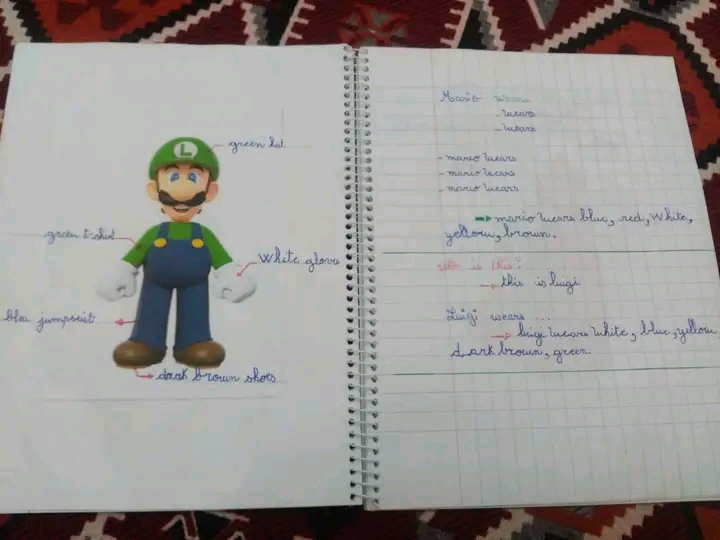 L
green hat
green t-shirt
White gloves
blea jumpsuit
dark brown shoes
Mario wears
- wears
- wears
- mario wears
- mario wears
- mario wears
mario wears blue, red, White,
yellow, brown.
who is this?
this is luigi
Luigi wears ...
luigi wears white, blue, yellow,
dark brown, green